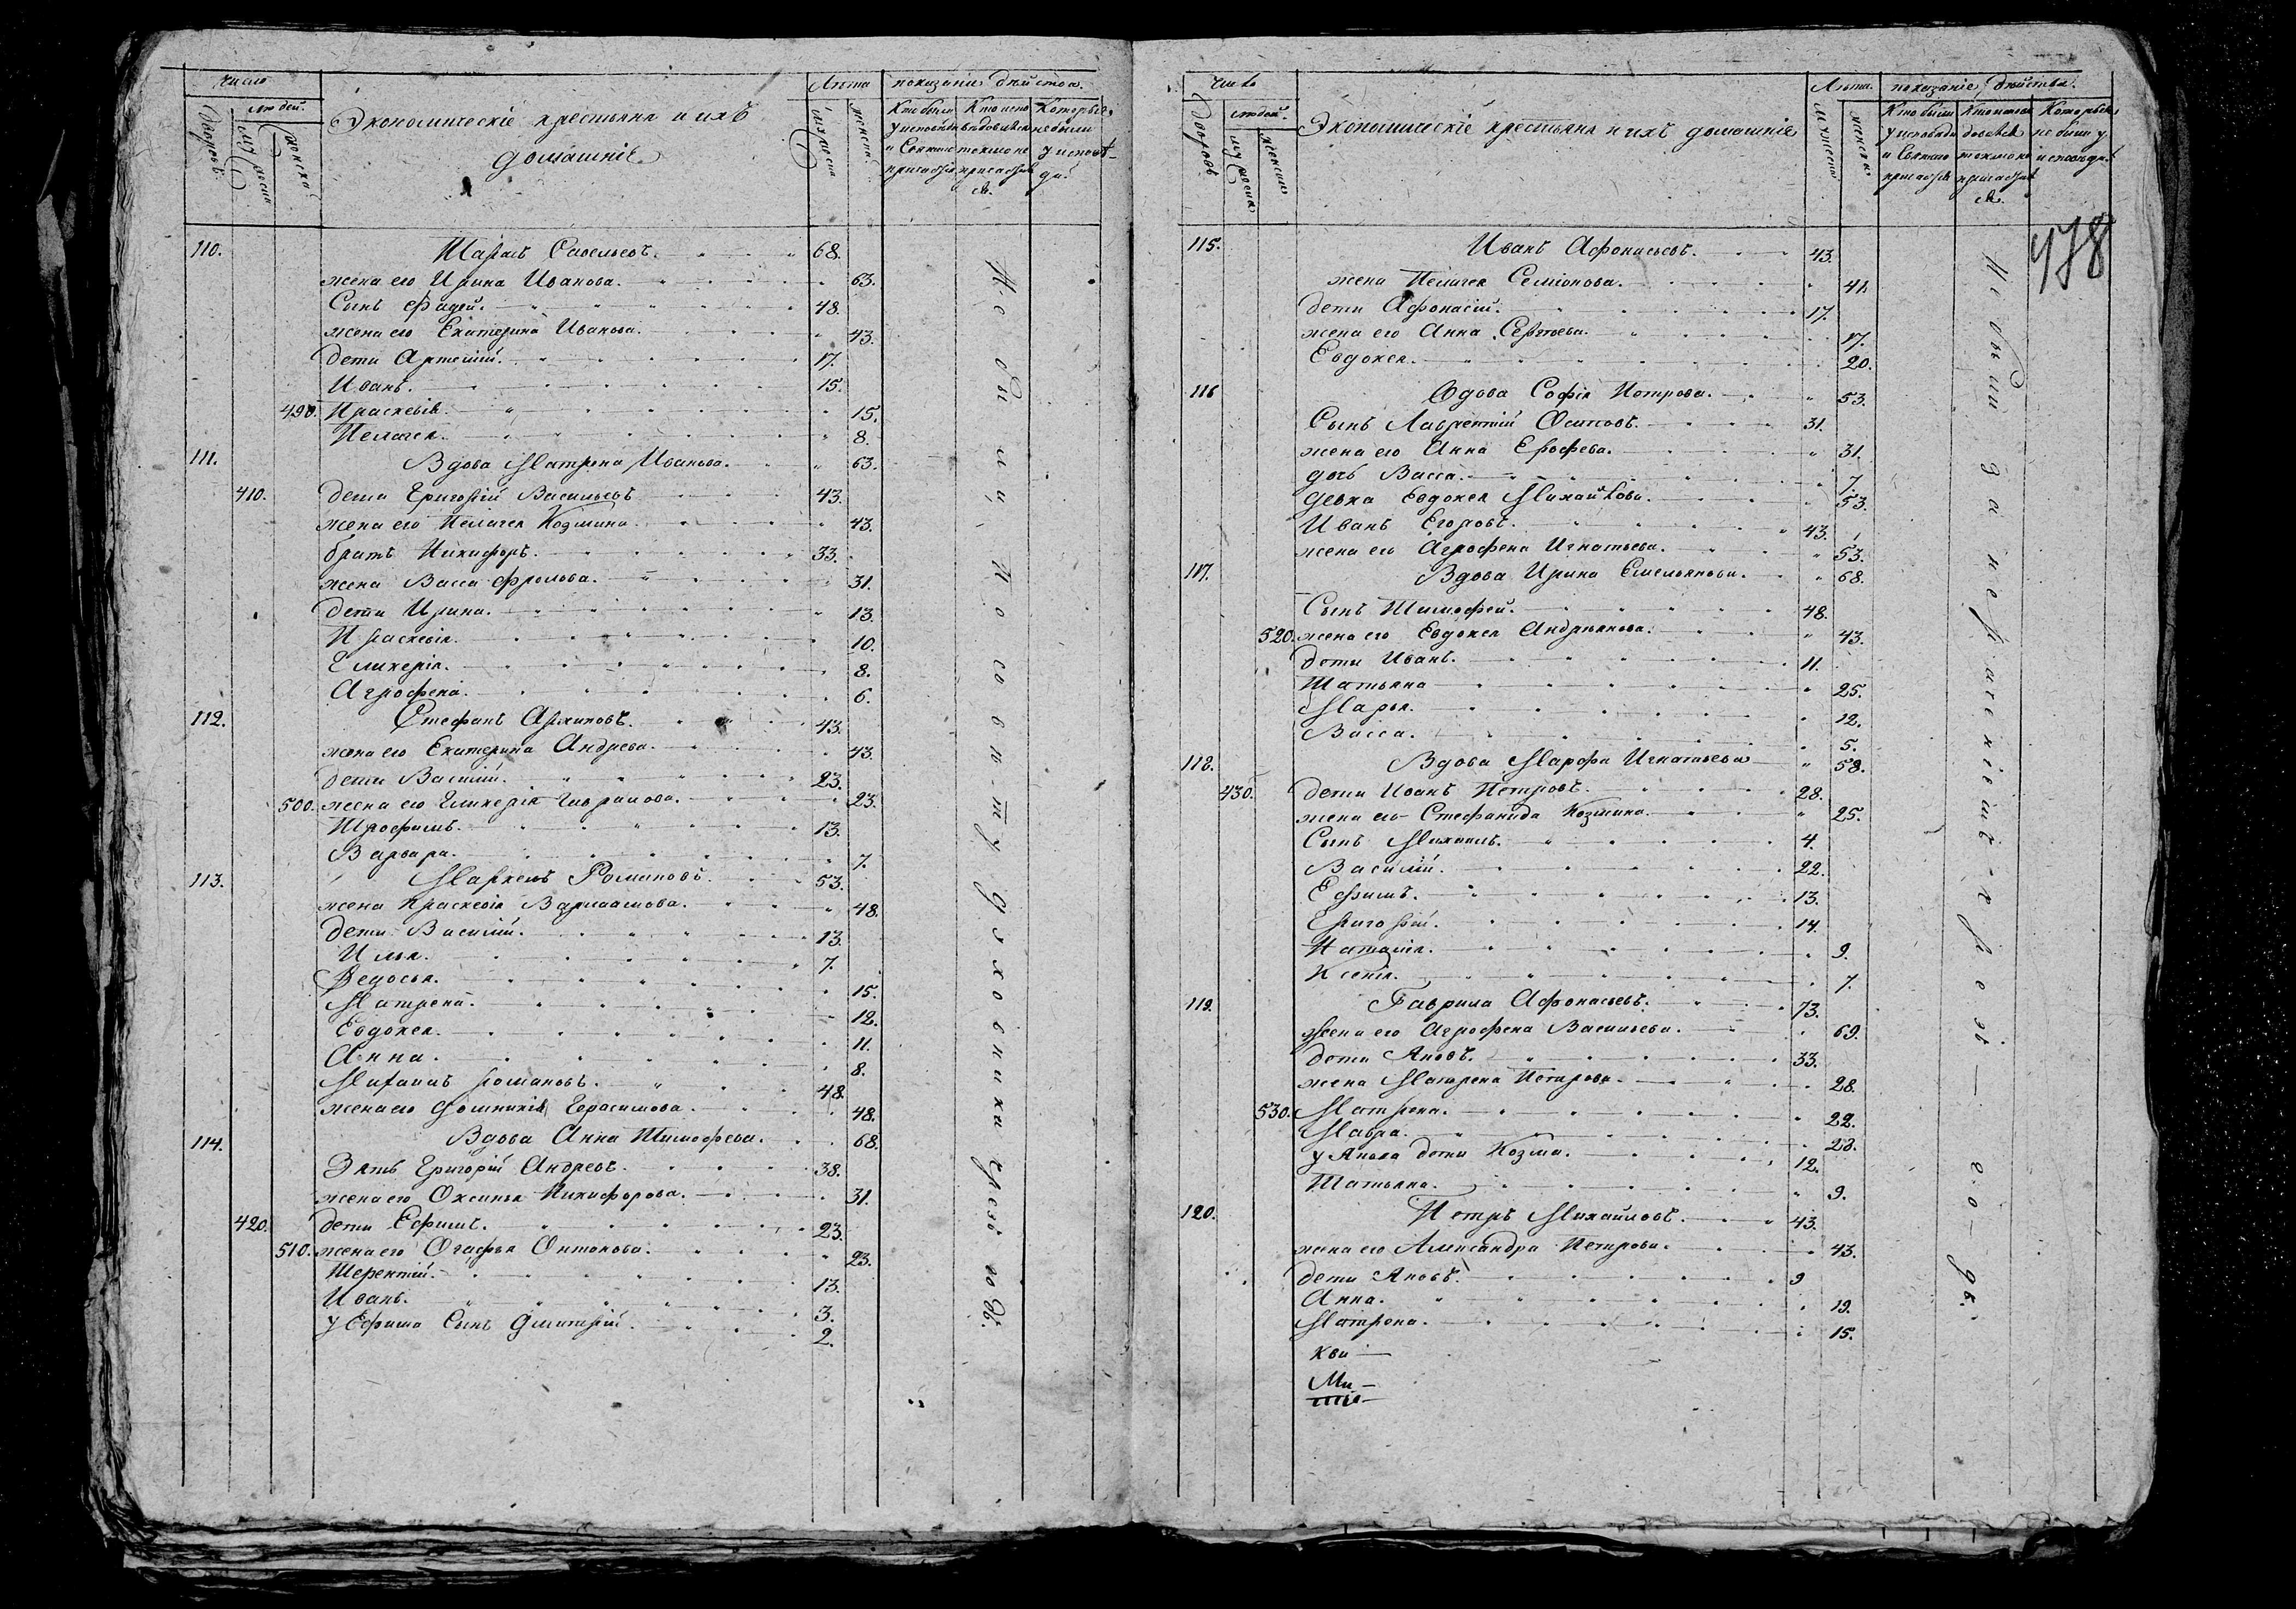 число
людей.
дворовъ
мужеска
женска
Экономическіе крестьяне и ихъ
домашніе
Лѣта
мужеска
женска
показаніе дѣйства.
Кто были у исповѣди и Святаго причастія
Кто исповѣдовался токмо не причастился.
Которые не были у исповѣди.
110. Тарасъ Савельевъ. 68.
жена его Ирина Иванова. 63.
Сынъ Фадей. 48.
жена его Екатерина Иванова. 43.
дети Артемій. 17.
Иванъ. 15.
490. Праскевія. 15.
Пелагея. 8.
111. Вдова Матрена Иванова. 63.
410. дети Григорій Васильевъ 43.
жена его Пелагея Козмина. 43.
братъ Никифоръ. 33.
жена Васса Фролова. 31.
дети Ирина. 13.
Праскевія. 10.
Гликерія. 8.
Агрофена. 6.
112. Стефанъ Архиповъ. 43.
жена его Екатерина Андрева. 43.
дети Василій. 23.
500. жена его Гликерія Гаврилова. 23.
Трофимъ. 13.
Варвара. 7.
113. Маркелъ Романовъ. 53.
жена Праскевія Варлаамова. 48.
дети Василій. 13.
Илья. 7.
Федосья. 15.
Матрена. 12.
Евдокея. 11.
Анна. 8.
Михаилъ Романовъ. 48.
жена его Домникія Герасимова. 48.
114. Вдова Анна Тимофева. 68.
Зять Григорій Андревъ. 38.
жена его Оксинья Никифорова. 31.
420. дети Ефимъ. 23.
510. жена его Огафья Онтонова. 23.
Терентій. 13.
Иванъ. 3.
у Ефима Сынъ Дмитрій. 2.
Не были, по совѣту духовника чрезъ годъ.
число
людей.
дворовъ
мужеска
женска
Экономическіе крестьяне и ихъ домашніе
Лѣта.
мужеска
женска
показаніе дѣйства.
Кто были у исповѣди и Святаго причастія
Кто исповѣдовался токмо не причастился.
Которые не были у исповѣди.
478
115. Иванъ Афонасьевъ. 43.
жена Пелагея Семіонова. 41.
дети Афонасій. 17.
жена его Анна Сергѣева. 17.
Евдокея. 20.
116 Вдова Софія Петрова. 53.
Сынъ Лаврентій Осиповъ. 31.
жена его Анна Ерофева. 31.
дочь Васса. 7.
девка Евдокея Михайлова. 53.
Иванъ Егоровъ. 43.
жена его Агрофена Игнатьева. 53.
117. Вдова Ирина Емельянова. 68.
Сынъ Тимофей. 48.
520. жена его Евдокея Андреянова. 43.
дети Иванъ. 11.
Татьяна 25.
Марья. 12.
Васса. 5.
118. Вдова Марфа Игнатьева 58.
430. дети Иванъ Петровъ. 28.
жена его Стефанида Козмина. 25.
Сынъ Михаилъ. 4.
Василій. 22.
Ефимъ. 13.
Григорій. 14.
Наталія. 9.
Ксенія. 7.
119. Гаврила Афонасьевъ. 73.
Жена его Агрофена Васильева. 69.
дети Яковъ. 33.
жена Матрена Петрова. 28.
530. Матрена. 22.
Мавра. 28.
у Якова дети Козма. 12.
Татьяна. 9.
120. Петръ Михайловъ. 43.
жена его Александра Петрова. 43.
дети Яковъ. 9
Анна. 19.
Матрена. 15.
Не были за нераченіемъ чрезъ годъ.